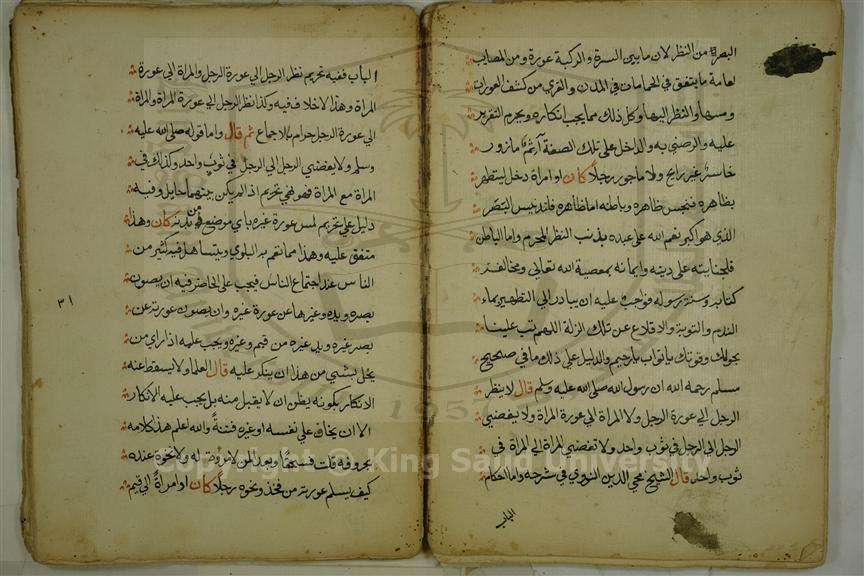 البصر من النظر لان ما بين السرة والركبة عورة ومن المصايب
لعامة ما يتفق في الحمامات في المدن والقري من كشف العورات
ومسها والنظر اليها وكل ذلك مما يجب انكاره ويحرم التقرير
عليه والرضى به والداخل على تلك الصفة آثم مازور
خاسر غير رابح ولا ماجور رجلا كان او امراة دخل ليتطهر
بظاهره فنجس ظاهره وباطنه اما ظاهره فلتدنيس البصر
الذي هو اكبر نعم الله على عبده بذنب النظر المحرم واما الباطن
فلجنايته على دينه وايمانه بمعصية الله تعالى ومخالفة
كتابه وسنة رسوله فوجب عليه ان يبادر الى التطهير بماء
الندم والتوبة والاقلاع عن تلك الزلة اللهم تب علينا
بحولك وقوتك يا تواب يا رحيم والدليل على ذلك ما في صحيح
مسلم رحمه الله ان رسول الله صلى الله عليه وسلم قال لا ينظر
الرجل الى عورة الرجل ولا المراة الى عورة المراة ولا يفضي
الرجل الى الرجل في ثوب واحد ولا تفضي المراة الى المراة في
ثوب واحد قال الشيخ محي الدين النووي في شرحه واما احكام
الباب
الباب ففيه تحريم نظر الرجل الى عورة الرجل والمراة الى عورة
المراة وهذا لا خلاف فيه وكذا نظر الرجل الى عورة المراة والمراة
الى عورة الرجل حرام بالاجماع ثم قال واما قوله صلى الله عليه
وسلم ولا يفضي الرجل الى الرجل في ثوب واحد وكذلك في
المراة مع المراة فهو نهي تحريم اذا لم يكن بينهما حايل وفيه
دليل على تحريم لمس عورة غيره باي موضع من بدنه كان وهذا
متفق عليه وهذا مما تعم به البلوي ويتساهل فيه كثير من
الناس عند اجتماع الناس فيجب على الحاضر فيه ان يصون
بصره ويده وغيرها عن عورة غيره وان يصون عورته عن
بصر غيره ويد غيره من قيم وغيره ويجب عليه اذا راي من
يخل بشي من هذا ان ينكر عليه قال العلما ولا يسقط عنه
الانكار بكونه يظن ان لا يقبل منه بل يجب عليه الانكار
الا ان يخاف على نفسه او غيره فتنة والله اعلم هذا كلامه
بحروفه قلت فسحقا وبعدا لمن لا مروة له ولا نخوة عنده
كيف يسلم عورته من فخذ ونحوه رجلا كان او امراة الى قيم
٣١
1957
Copyright © King Saud University